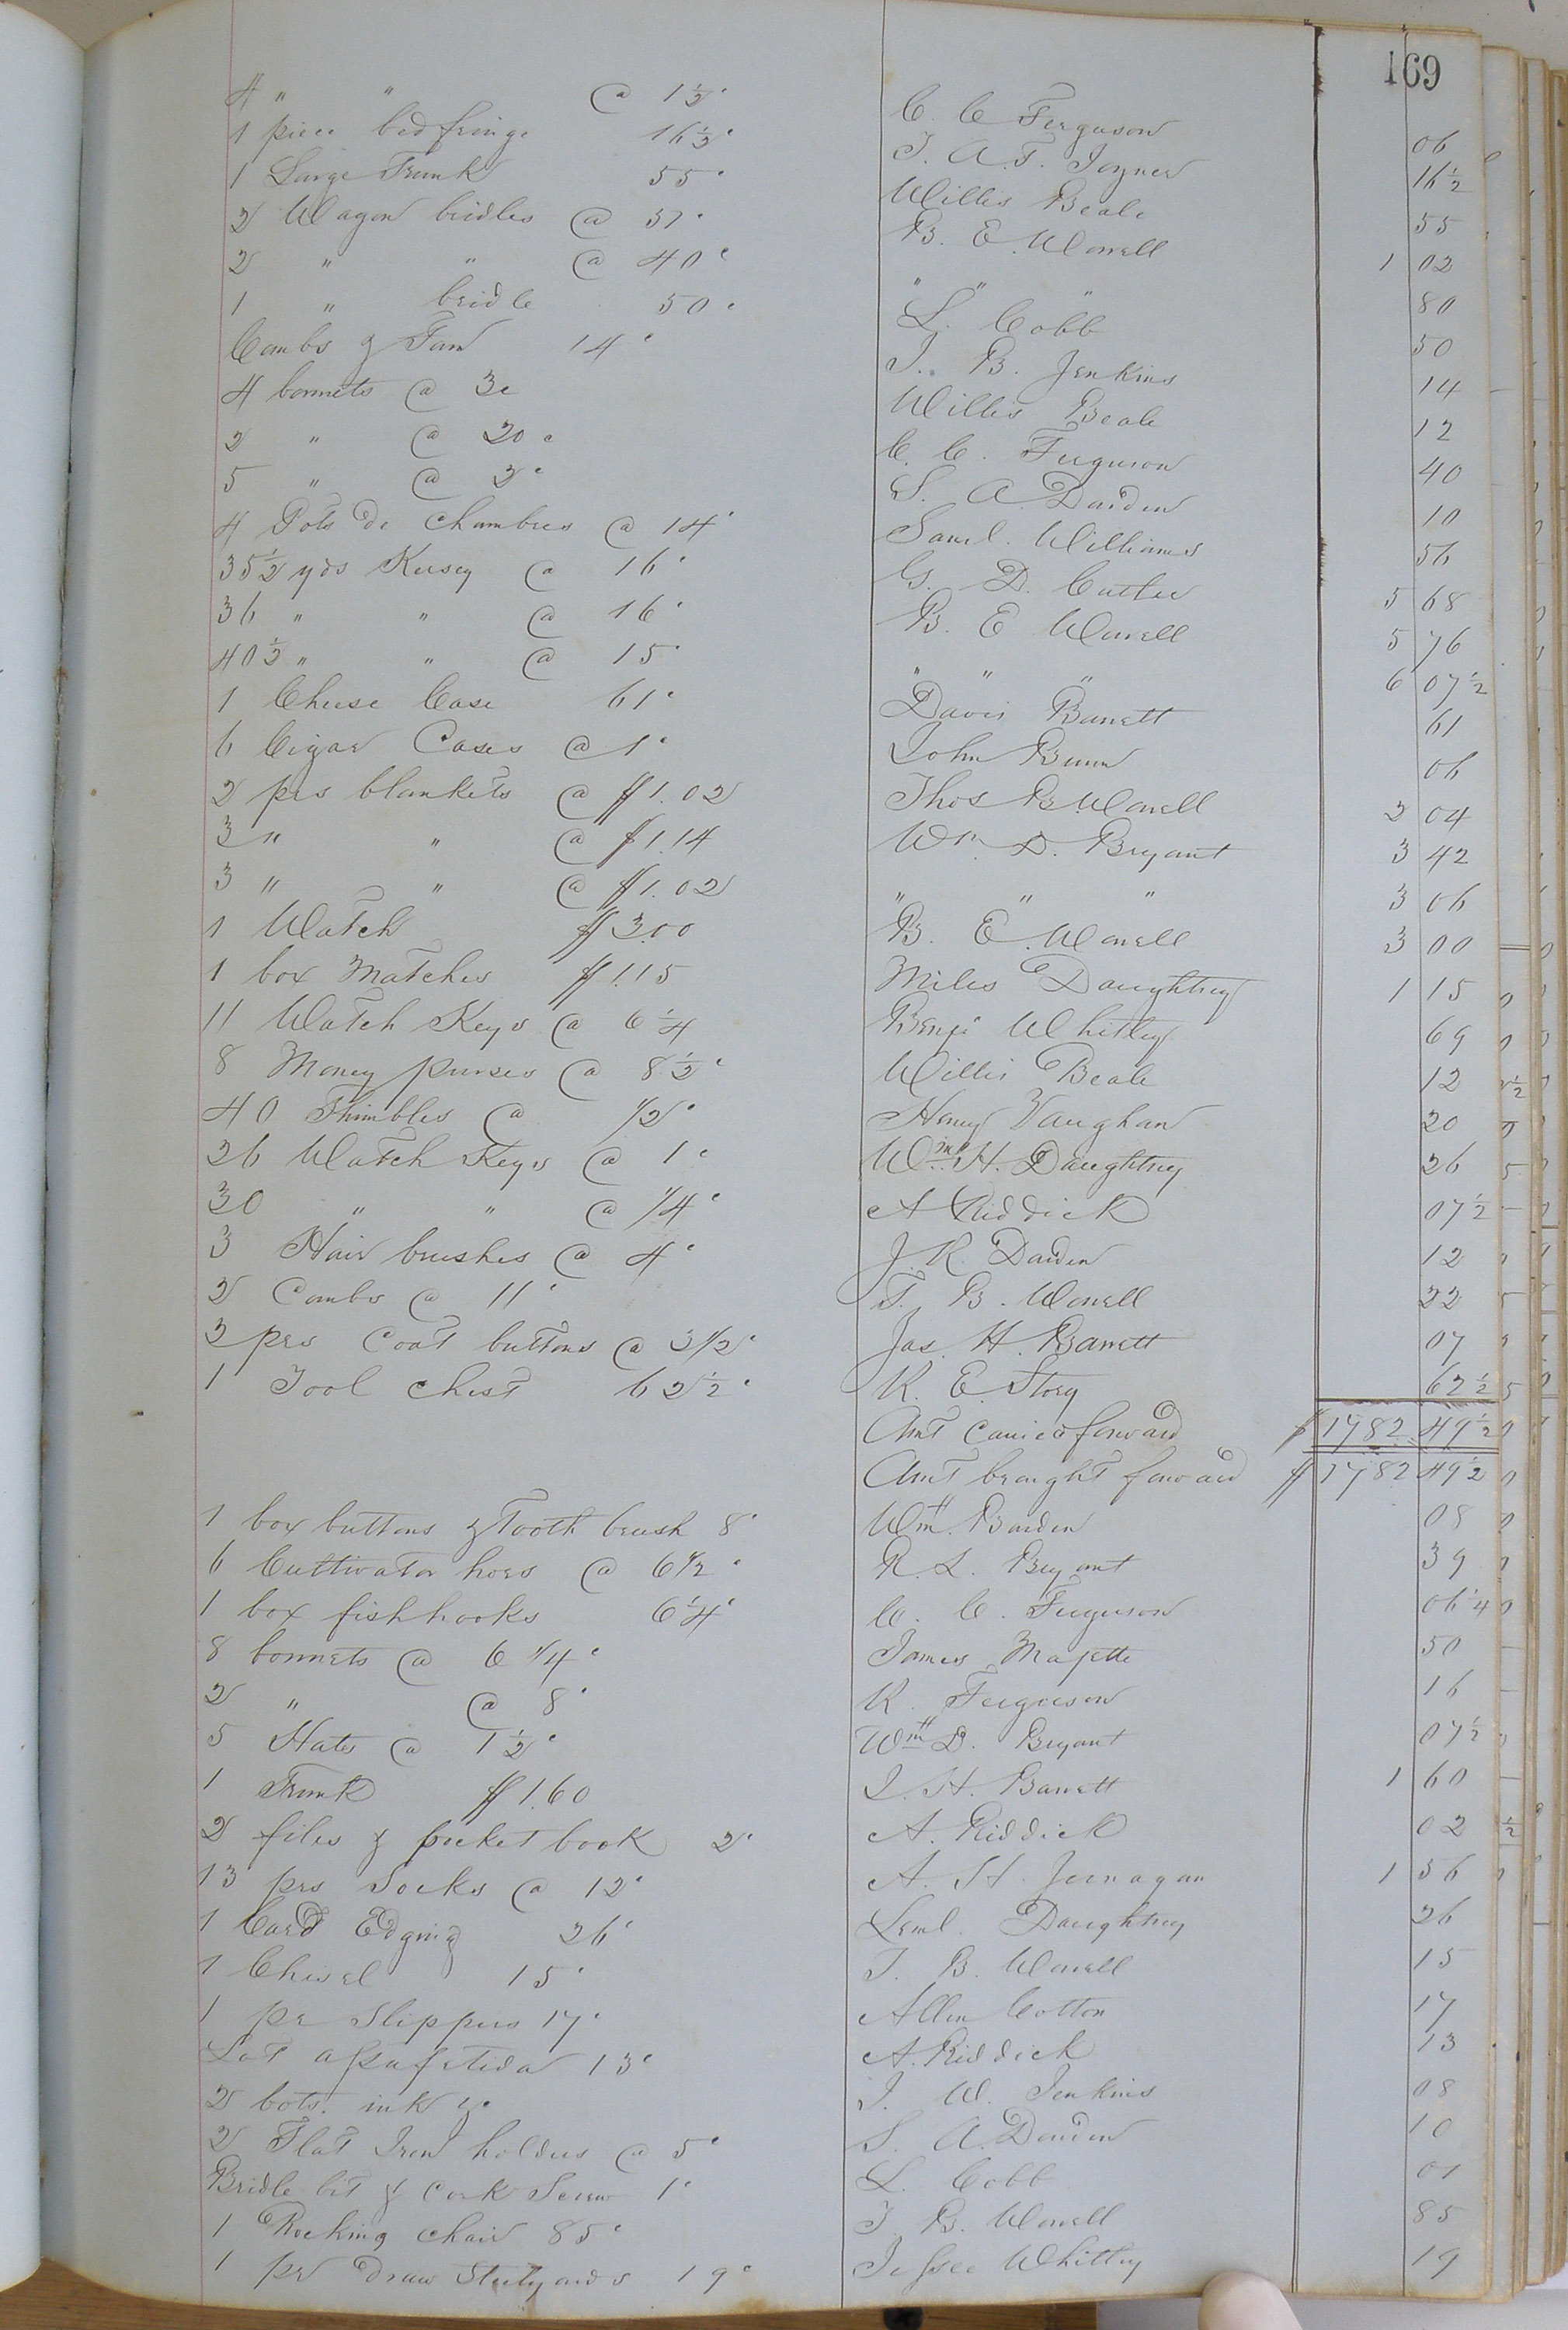 169
4 " " @ 1½c C. C. Ferguson 06
1 piece bed fringe 16½c J. A. T. Joyner 16½
1 Large Trunk 55c Willis Beale 55
2 Wagon bridles @ 51c B. E. Worrell 1 02
2 " " @ 40c " " " 80
1 " bridle 50c L. Cobb 50
Combs & Fan 14c J. B. Jenkins 14
4 bonnets @ 3c Willis Beale 12
2 " @ 20c C. C. Ferguson 40
5 " @ 2c S. A. Darden 10
4 Pots de Chambres @ 14c Saml. Williams 56
35½ yds Kersey @ 16c G. D. Cutler 5 68
36 " " @ 16c B. E Worrell 5 76
40½ " " @ 15c " " " 6 07½
1 Cheese Case 61c Davis Barrett 61
6 Cigar Cases @ 1c John Bunn 06
2 prs blankets @ $1.02 Thos B. Worrell 2 04
3 " " @ $1.14 Wm. D. Bryant 3 42
3 " " @ $1.02 " " " 3 06
1 Watch $3.00 B. E. Worrell 3 00
1 box Matches $1.15 Miles Daughtrey 1 15
11 Watch Keys @ 6¼ Benj. Whitley 69
8 Money purses @ 8½c Willis Beale 12
40 Thimbles @ 1/2c Henry Vaughan 20
26 Watch Keys @ 1c Wm. H. Daughtrey 26
30 " " @ 1/4c A Riddick 07½
3 Hair brushes @ 4c J. R. Darden 12
2 Combs @ 11c T. B. Worrell 22
2 prs Coat buttons @ 3 1/2c Jas. H. Barrett 07
1 Tool chest 62½c R. E. Story 62½
Amt carried forward $1782 49½
Amt brought forward $1782 49½
1 box buttons & Tooth brush 8c Wm. Barden 08
6 Cultivator hoes @ 6 1/2c R. L. Bryant 39
1 box fish hooks 6¼c C. C. Ferguson 06¼
8 bonnets @ 6 1/4c James Majette 50
2 " @ 8c R. Ferguson 16
5 Hats @ 1½c Wm D. Bryant 07½
1 Trunk $1.60 J. H. Barrett 1 60
2 files & pocket book 2c A. Riddick 02
13 prs Socks @ 12c A. H. Jernagan 1 56
1 Card Edging 26c Leml. Daughtrey 26
1 Chisel 15c T. B. Worrell 15
1 pr Slippers 17c Allen Cotton 17
Lot assafetida 13c A. Riddick 13
2 bots. ink J. W. Jenkins 08
2 Flat Iron holders @ 5c S. A. Darden 10
Bridle bit & Cork Screw 1c L. Cobb 01
1 Rocking chair 85c T B. Worrell 85
1 pr Draw Steelyards 19c Jessee Whitley 19